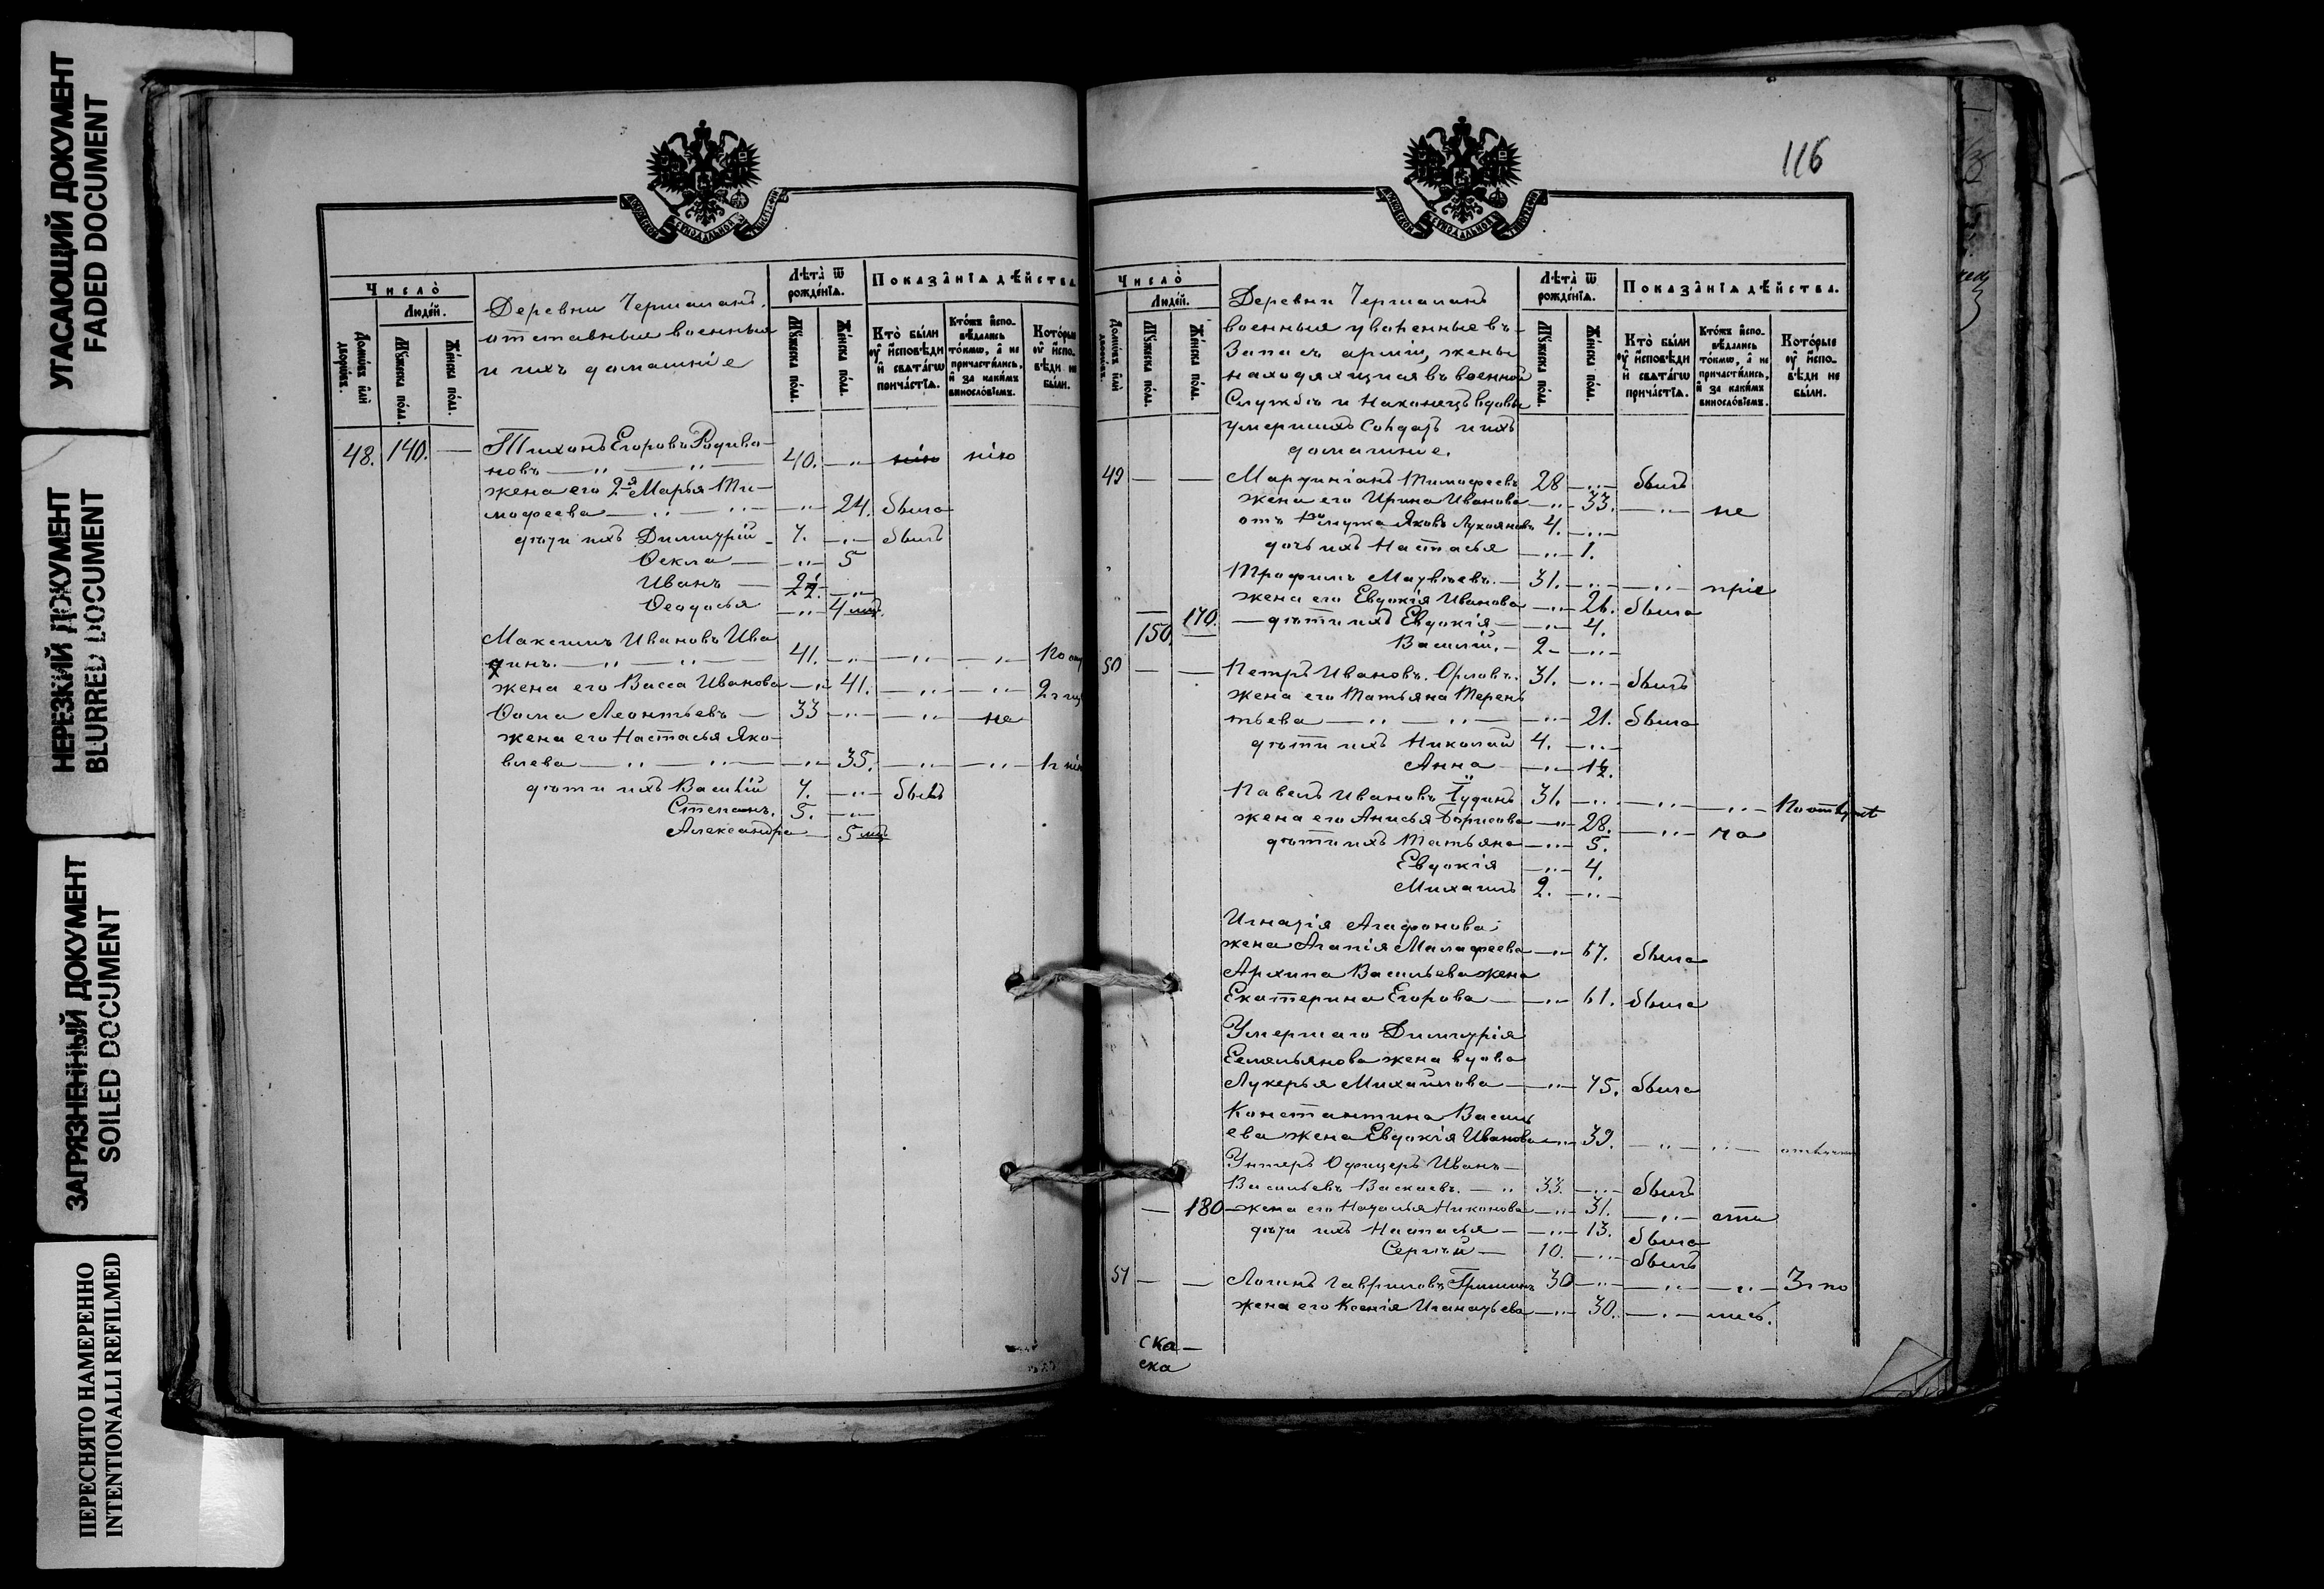 УГАСАЮЩИЙ ДОКУМЕНТ
FADED DOCUMENT
НЕРЕЗКИЙ ДОКУМЕНТ
BLURRED DOCUMENT
ЗАГРЯЗНЕННЫЙ ДОКУМЕНТ
SOILED DOCUMENT
ПЕРЕСНЯТО НАМЕРЕННО
INTENTIONALLI REFILMED
Число
Людей.
Мужеска пола.
Женска пола.
Деревни Чермалакъ.
отставные военные
и ихъ домашніе
Лѣта ѿ рожденїѧ.
Мужеска пола.
Женска пола.
Показанїѧ дѣйства
Кто были у исповѣди и свѧтагѡ причастїѧ.
Ктожъ исповѣдались токмѡ, а не причастились, и за какимъ винословїемъ.
Которые у исповѣди не были.
48. 140. — Тихонъ Егоровъ Родиво-
новъ — 40.
жена его 2я Марья Ти-
мофеева — 24. была
дѣти ихъ Димитрій 7. была
Ѳекла — 5
Иванъ —
Ѳеодосья — 4 мц.
Максимъ Ивановъ Ива
динъ. — 41.
жена его Васса Иванова — 41.
Ѳома Леонтьевъ — 33 — не
жена его Настасья Яко-
влева — 35.
дѣти ихъ Василій 7. былъ
Степанъ. 5.
Александра — 5 мц.
116
Число
Людей.
Мужеска пола.
Женска пола.
Деревни Чермалакъ
военныя уволенные въ
Запасъ арміи, жены
находяхщихся въ военной
Службѣ и Наконецъ вдовы
умершихъ Солдатъ и ихъ
домашніе.
Лѣта ѿ рожденїѧ.
Мужеска пола.
Женска пола.
Показанїѧ дѣйства.
Кто были у исповѣди и свѧтагѡ причастїѧ.
Ктожъ исповѣдались токмѡ, а не причастились, и за какимъ винословїемъ.
Которые у исповѣди не были.
49 — — Тимофеевъ 28 былъ
жена его Ирина Иванова — 33. — не
отъ мужа Яковъ Лукояновъ 4.
дочь ихъ Настасья — 1.
Трофимъ Матвѣевъ. — 31.
жена его Евдокія Иванова — 26. была
150. 170. — дѣти ихъ Евдокія — 4.
Василій. — 2
50 — — Петръ Ивановъ Орловъ. 31. — былъ
жена его Татьяна Терен
тьева — 21. была
дѣти ихъ Николай 4.
Анна
Павелъ Ивановъ 31.
жена его Анисья Борисова — 28.
дѣти ихъ Татьяна — 5.
Евдокія — 4.
Михаилъ 2.
Игнатія Агафонова
жена Агапія Малафеева — 67. была
Архипа Васильева жена
Екатерина Егорова — 61. была
Умершаго Димитрія
Емельянова жена вдова
Лукерья Михайлова — 75. была
Константина Василь
ева жена Евдокія Иванова — 39.
Унтеръ Офицеръ Иванъ
Васильевъ Васкаевъ. — 33. — былъ
— 180 жена его Наталья Никонова — 31.
дѣти ихъ Настасья — 13. была
Сергѣй — 10. былъ
51 — — Логинъ Гавриловъ Гришинъ 30
жена его Ксенія Игнатьева — 30.